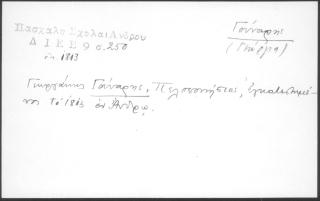 Πασχάλη Σχολαί Άνδρου
ΔΙΕΕ 9 σ. 250
ἐν 1813
Γούναρης
Γεωργάκης Γούναρης, Πελοποννήσιος, ἐγκατεστημέ-
νος τὸ 1813 ἐν Ἄνδρῳ.